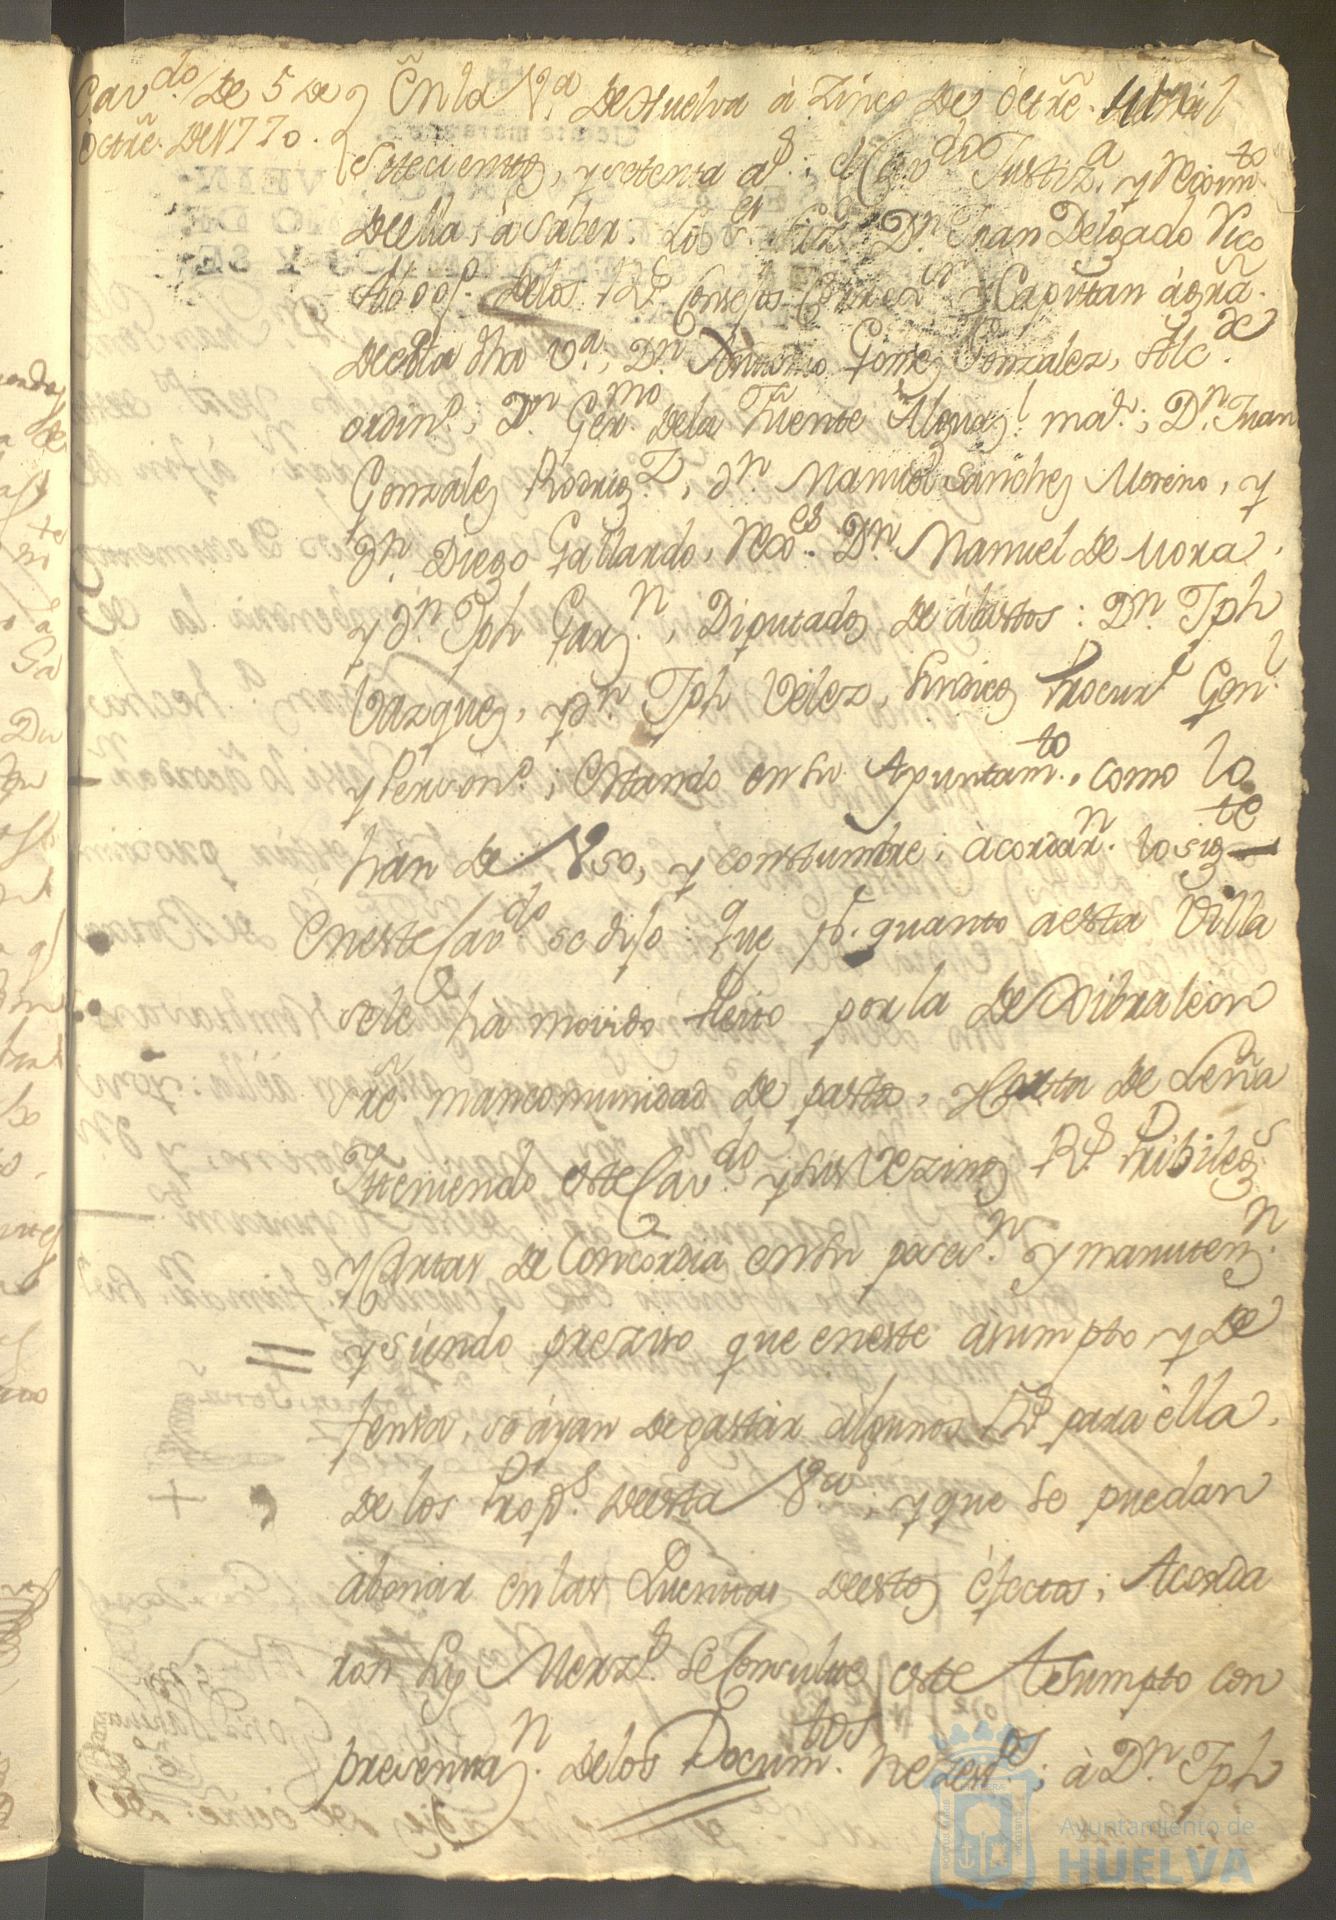 Cav.do De 5 de
Octre. De 1770.
En la V.a De Huelva à Zinco De Octre. de mil
Setecientos, y setenta a.s; el Cav.do Justiz.a y Regim.to
de ella, à saber. Los S.res Liz.do D.n Juan Delgado Rico
Abog.do de los R.s Consejos Correx.or y Capitan á grã.
de esta dha V.a, D.n Antonio Gomez Gonzalez, Alc.de
ordin.o; D.n Ger.mo de la Fuente Alguaz.l mar.; D.n Juan
Gonzalez Rodrig.z, d.n Manuel Sanchez Moreno, y
d.n Diego Gallardo, Rex.es D.n Manuel De Mora,
y d.n Jph Garz.n, Diputados de ábastos: D.n Jph
Vazquez, y d.n Jph Velez, Sindicos Procur.s Gen.l
y Person.o; estando en su Apuntam.to, como lo
han de Uso, y constumbre; àcordar.n lo sig.te
En este Cav.do se dijo: que p.r quanto a esta Villa
se le hà movido Pleito por la De Xibraleon
sre mancomunidad de pasto, y Corta de Leña
Y teniendo este Cav.do y sus Vezinos R.s Pribileg.s
y Cartas de Concordia en su poses.n y manuten.n
y siendo preziso que en este asumpto y De
fensa, se áyan de gastar algunos R.s para élla,
de los Prop.s de esta V.a; y que se puedan
abonar en las Quentas de estos éfectos; Acorda
ron sus Merz.s se Consulte este Asumpto con
presentaz.n de los Docum.tos nezes.os; à D.n Jph
Ayuntamiento de
HUELVA